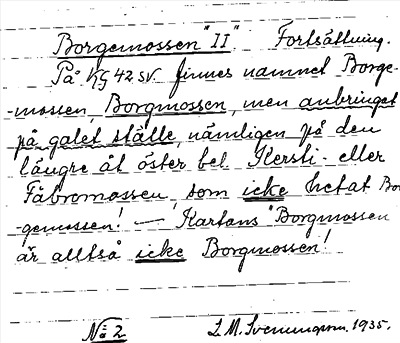 Borgemossen "II". Fortsättning.
På KG 42 SV. finnes namnet Borge-
-mossen, Borgmossen, men anbringat
på galet ställe, nämligen på den
längre åt öster bel. Kersti- eller
Fäbromossen, som icke hetat Bor
gemossen! — Kartans "Borgmossen
är alltså icke Borgmossen!
No 2 1935.